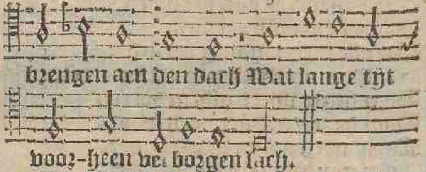 brengen aen den dach Wat lange tijt
voor-heen verborgen lach.